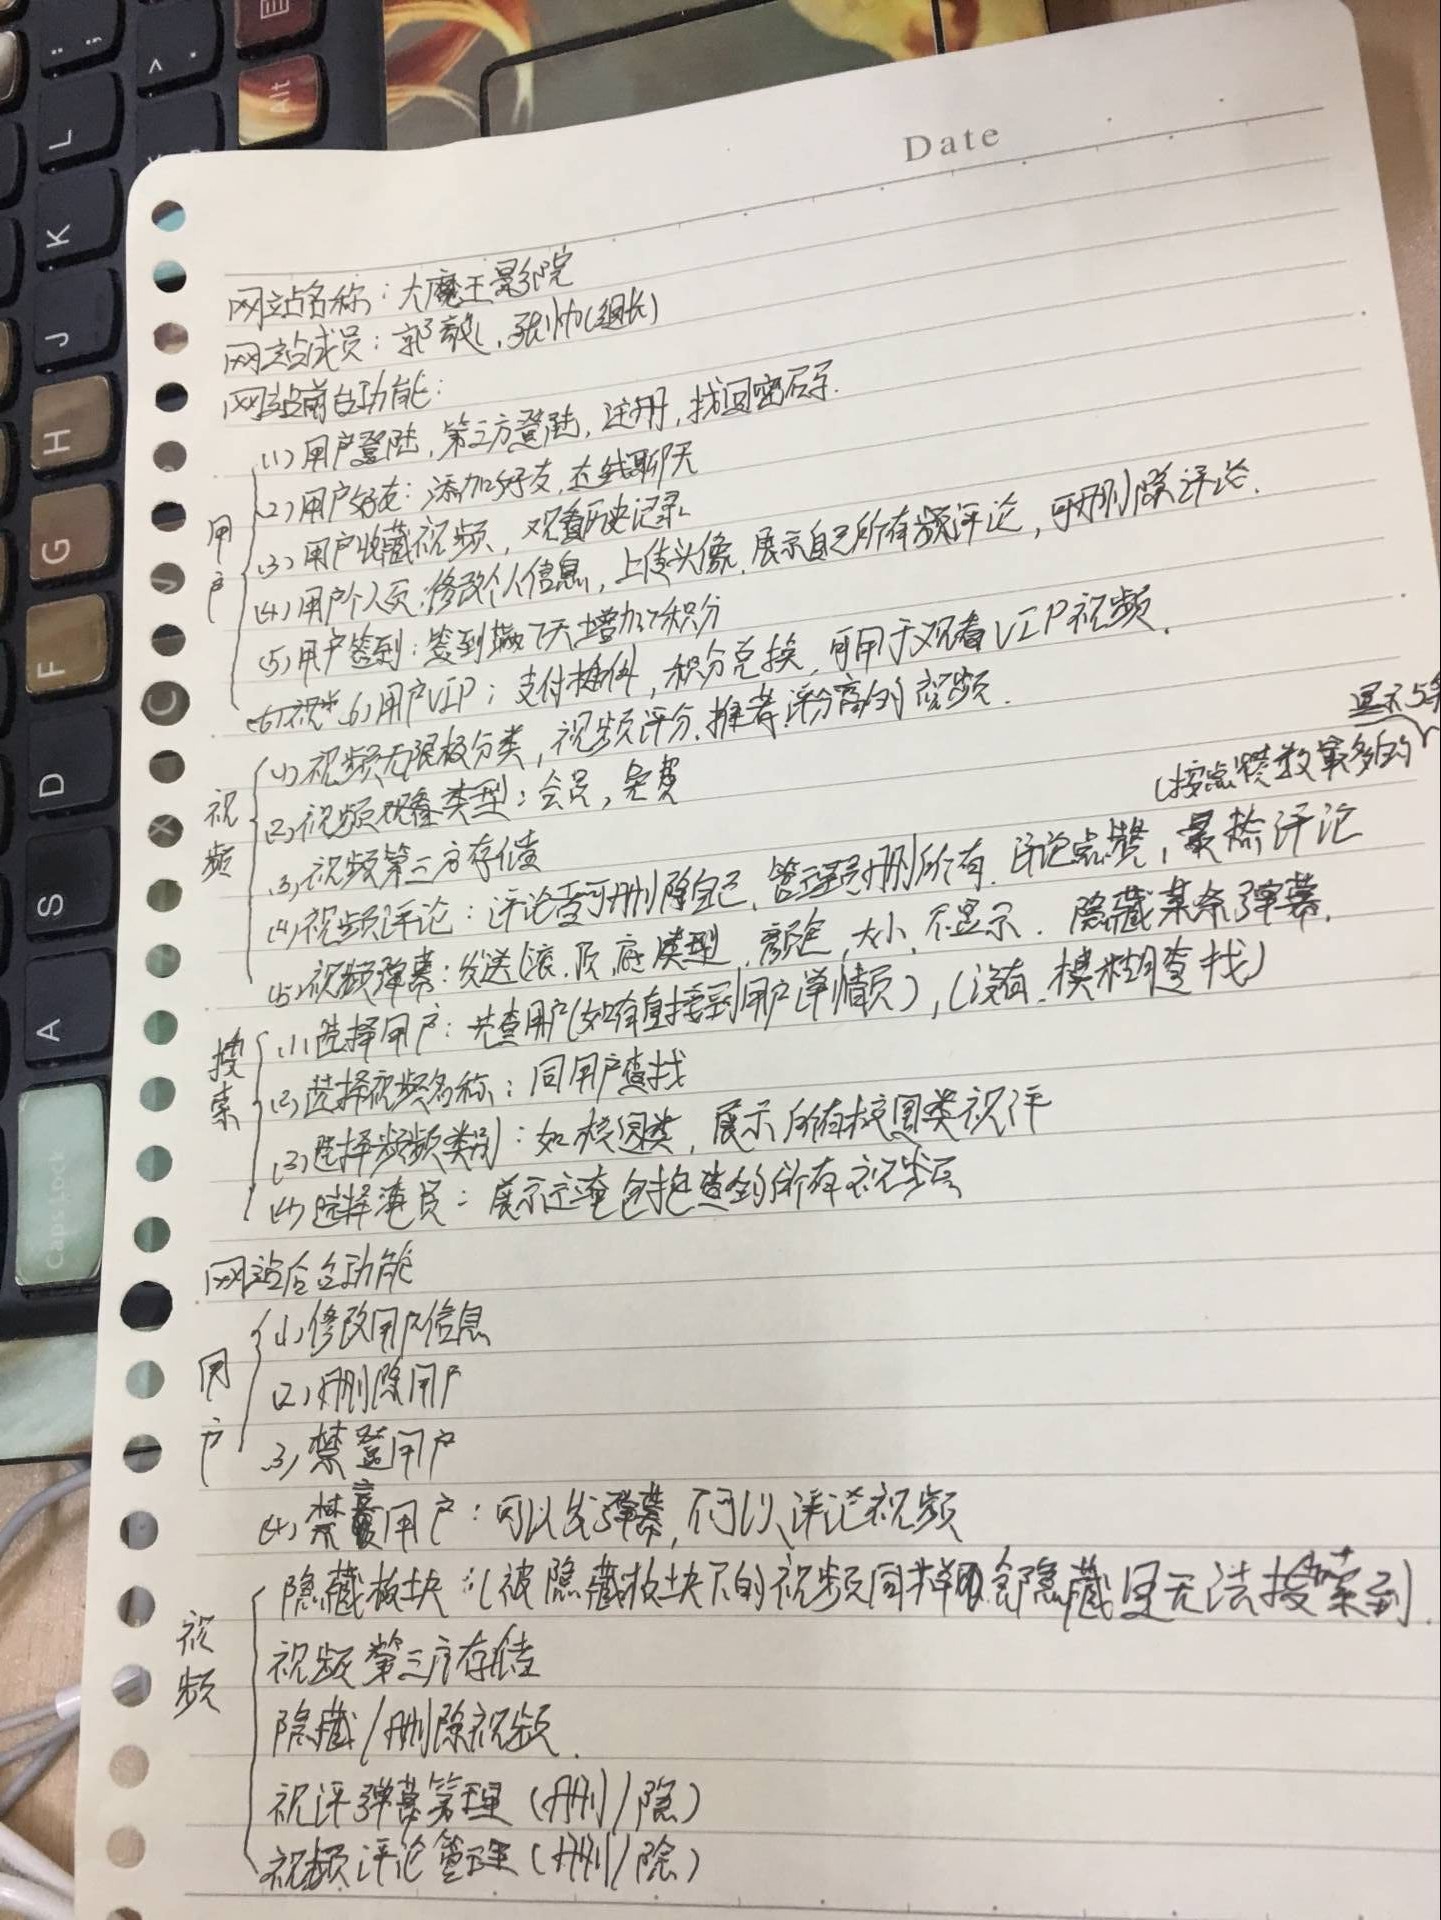 Date
网站名称：大魔王影院
网站成员：郭毅，张帅(组长)
网站前台功能：
用户
(1) 用户登陆，第三方登陆，注册，找回密码.
(2) 用户好友：添加好友，在线聊天
(3) 用户收藏视频，观看历史记录
(4) 用户个人页：修改个人信息，上传头像，展示自己所有频评论，可删除评论.
(5) 用户签到：签到满7天增加积分
(6) 用户VIP：支付插件，积分兑换，可用于观看VIP视频.
视频
(1) 视频无限极分类，视频评分，推荐评分高的视频.
(2) 视频观看类型：会员，免费
(3) 视频第三方存储
(按点赞数最多的
显示5条
(4) 视频评论：评论者可删除自己，管理员删所有. 评论点赞，最热评论
(5) 视频弹幕：发送(滚，顶，底)类型，颜色，大小，不显示. 隐藏某条弹幕.
搜索
(1) 选择用户：先查用户(如有直接到用户详情页)，(没有，模糊查找)
(2) 选择视频名称：同用户查找
(3) 选择频频类别：如校园类，展示所有校园类视评
(4) 选择演员：展示这演包括查的所有视频
网站后台功能
用户
(1) 修改用户信息
(2) 删除用户
(3) 禁登用户
(4) 禁言用户：可以发弹幕，不可以评论视频
视频
隐藏板块：(被隐藏板块下的视频同样会隐藏且无法搜索到.
视频第三方存储
隐藏/删除视频.
视评弹幕管理 (删/隐)
视频评论管理 (删/除)
Alt
L
K
J
H
G
F
D
S
A
Caps Lock